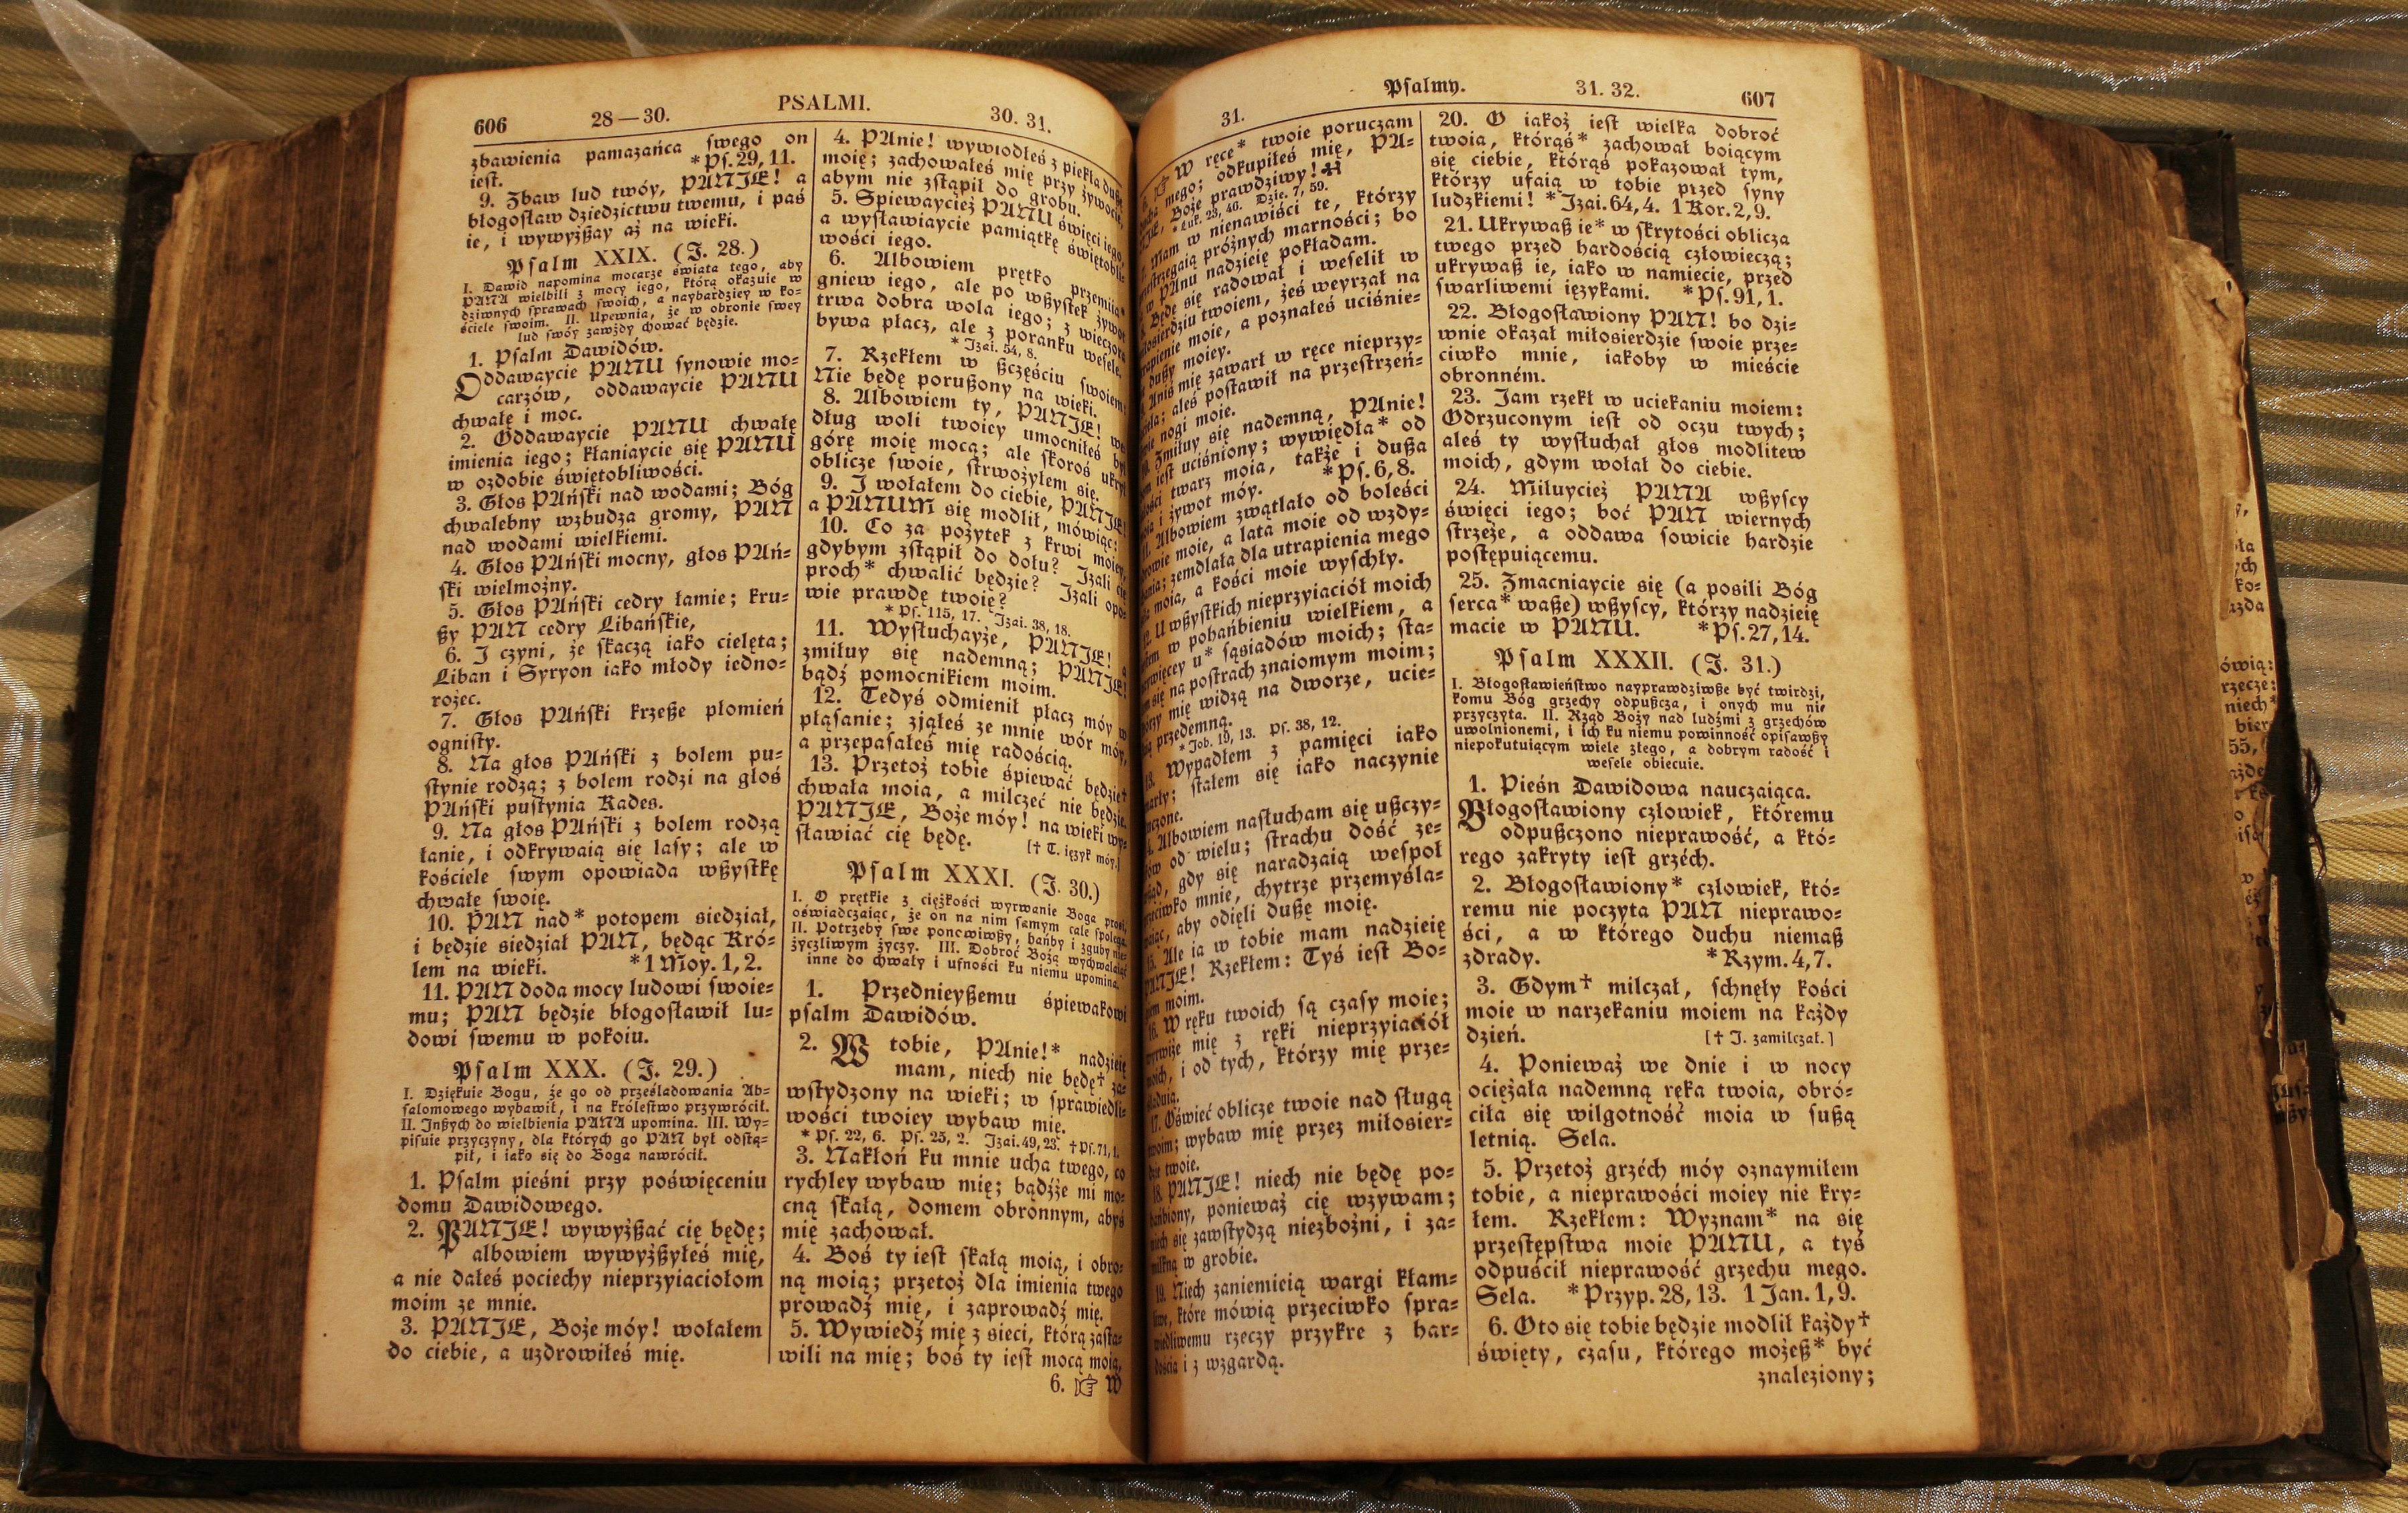 606 28—30. PSALMI. 30. 31.
zbawienia pamazańca ſwego on
ieſt. *Pſ. 29, 11.
9. Zbaw lud twóy, PANJE! a
błogoſław dziedzictwu twemu, i paś
ie, i wywyżßay aż na wieki.
Pſalm XXIX. (J. 28.)
I. Dawid napomina mocarze świata tego, aby
PANA wielbili z mocy iego, którą okazuie w
dziwnych ſprawach ſwoich, a naybardziey w ko-
ściele ſwoim. II. Upewnia, że w obronie ſwey
lud ſwóy zawżdy chować będzie.
1. Pſalm Dawidów.
Oddawaycie PANU ſynowie mo-
carzów, oddawaycie PANU
chwałę i moc.
2. Oddawaycie PANU chwałę
imienia iego; kłaniaycie się PANU
w ozdobie świętobliwości.
3. Głos PAńſki nad wodami; Bóg
chwalebny wzbudza gromy, PAN
nad wodami wielkiemi.
4. Głos PAńſki mocny, głos PAń-
ſki wielmożny.
5. Głos PAńſki cedry łamie; kru-
ßy PAN cedry Libańſkie,
6. J czyni, że ſkaczą iako cielęta;
Liban i Syryon iako młody iedno-
rożec.
7. Głos PAńſki krzeße płomień
ogniſty.
8. Na głos PAńſki z bolem pu-
ſtynie rodzą; z bolem rodzi na głos
PAńſki puſtynia Kades.
9. Na głos PAńſki z bolem rodzą
łanie, i odkrywaią się laſy; ale w
kościele ſwym opowiada wßyſtkę
chwałę ſwoię.
10. PAN nad* potopem siedział,
i będzie siedział PAN, będąc Kró-
lem na wieki. *1 Moy. 1, 2.
11. PAN doda mocy ludowi ſwoie-
mu; PAN będzie błogoſławił lu-
dowi ſwemu w pokoiu.
Pſalm XXX. (J. 29.)
I. Dziękuie Bogu, że go od prześladowania Ab-
ſalomowego wybawił, i na króleſtwo przywrócił.
II. Jnßych do wielbienia PANA upomina. III. Wy-
piſuie przyczyny, dla których go PAN był odſtą-
pił, i iako się do Boga nawrócił.
1. Pſalm pieśni przy poświęceniu
domu Dawidowego.
2. PANJE! wywyżßać cię będę;
albowiem wywyżßyłeś mię,
a nie dałeś pociechy nieprzyiaciołom
moim ze mnie.
3. PANJE, Boże móy! wołałem
do ciebie, a uzdrowiłeś mię.
4. PAnie! wywiodłeś z piekła dußę
moię; zachowałeś mię przy żywocie,
abym nie zſtąpił do grobu.
5. Spiewaycież PANU święci iego,
a wyſławiaycie pamiątkę świętobli-
wości iego.
6. Albowiem prętko przemiia*
gniew iego, ale po wßyſtek żywot
trwa dobra wola iego; z wieczora
bywa płacz, ale z poranku weſele.
* Jzai. 54, 8.
7. Rzekłem w ßczęściu ſwoiem:
Nie będę porußony na wieki.
8. Albowiem ty, PANJE! we-
dług woli twoiey umocniłeś był
górę moię mocą; ale ſkoroś ukrył
oblicze ſwoie, ſtrwożyłem się.
9. J wołałem do ciebie, PANJE!
a PANUM się modlił, mówiąc:
10. Co za pożytek z krwi moiey,
gdybym zſtąpił do dołu? Jzali cię
proch* chwalić będzie? Jzali opo-
wie prawdę twoię?
* Pſ. 115, 17. Jzai. 38, 18.
11. Wyſłuchayże, PANJE! a
zmiłuy się nademną; PANJE!
bądź pomocnikiem moim.
12. Tedyś odmienił płacz móy w
pląſanie; zjąłeś ze mnie wór móy,
a przepaſałeś mię radością.
13. Przetoż tobie śpiewać będzie†
chwała moia, a milczeć nie będzie.
PANJE, Boże móy! na wieki wy-
ſławiać cię będę. [† T. ięzyk móy.]
Pſalm XXXI. (J. 30.)
I. O prętkie z ciężkości wyrwanie Boga proſi,
oświadczaiąc, że on na nim ſamym cale ſpolega.
II. Potrzeby ſwe ponowiwßy, hańby i zguby nie-
życzliwym życzy. III. Dobroć Bożą wychwalaiąc
inne do chwały i ufności ku niemu upomina.
1. Przednieyßemu śpiewakowi
pſalm Dawidów.
2. W tobie, PAnie!* nadzieię
mam, niech nie będę† za-
wſtydzony na wieki; w ſprawiedli-
wości twoiey wybaw mię.
* Pſ. 22, 6. Pſ. 25, 2. Jzai. 49, 23. †Pſ. 71, 1.
3. Nakłoń ku mnie ucha twego, co
rychley wybaw mię; bądźże mi mo-
cną ſkałą, domem obronnym, abyś
mię zachował.
4. Boś ty ieſt ſkałą moią, i obro-
ną moią; przetoż dla imienia twego
prowadź mię, i zaprowadź mię.
5. Wywiedź mię z sieci, którą zaſta-
wili na mię; boś ty ieſt mocą moią,
6. ☞ W
31. Pſalmy. 31. 32. 607
6. ☞ W ręce* twoie poruczam
ducha mego; odkupiłeś mię, PA-
NJE, Boże prawdziwy!
* Łuk. 23, 46. Dzie. 7, 59.
7. Mam w nienawiści te, którzy
przeſtrzegaią próżnych marności; bo
w PAnu nadzieię pokładam.
8. Będę się radował i weſelił w
miłosierdziu twoiem, żeś weyrzał na
utrapienie moie, a poznałeś uciśnie-
nie dußy moiey.
9. Aniś mię zawarł w ręce nieprzy-
iaciela; aleś poſtawił na przeſtrzeń-
ſtwie nogi moie.
10. Zmiłuy się nademną, PAnie!
bom ieſt uciśniony; wywiędła* od
żałości twarz moia, także i dußa
moia i żywot móy. *Pſ. 6, 8.
11. Albowiem zwątlało od boleści
zdrowie moie, a lata moie od wzdy-
chania; zemdlała dla utrapienia mego
siła moia, a kości moie wyſchły.
12. U wßyſtkich nieprzyiaciół moich
ieſtem w pohańbieniu wielkiem, a
naywięcey u* sąsiadów moich; ſta-
łem się na poſtrach znaiomym moim;
którzy mię widzą na dworze, ucie-
kaią przedemną.
* Job. 19, 13. Pſ. 38, 12.
13. Wypadłem z pamięci iako
umarły; ſtałem się iako naczynie
ſtłuczone.
14. Albowiem naſłucham się ußczy-
pków od wielu; ſtrachu dość ze-
wßąd, gdy się naradzaią weſpoł
przeciwko mnie, chytrze przemyśla-
waiąc, aby odięli dußę moię.
15. Ale ia w tobie mam nadzieię
PANJE! Rzekłem: Tyś ieſt Bo-
giem moim.
16. W ręku twoich są czaſy moie;
wyrwiże mię z ręki nieprzyiaciół
moich, i od tych, którzy mię prze-
śladuią.
17. Oświeć oblicze twoie nad ſługą
twoim; wybaw mię przez miłosier-
dzie twoie.
18. PANJE! niech nie będę po-
hańbiony, ponieważ cię wzywam;
niech się zawſtydzą niezbożni, i za-
milkną w grobie.
19. Niech zaniemieią wargi kłam-
liwe, które mówią przeciwko ſpra-
wiedliwemu rzeczy przykre z har-
dością i z wzgardą.
20. O iakoż ieſt wielka dobroć
twoia, którąś* zachował boiącym
się ciebie, którąś pokazował tym,
którzy ufaią w tobie przed ſyny
ludzkiemi! *Jzai. 64, 4. 1 Kor. 2, 9.
21. Ukrywaß ie* w ſkrytości oblicza
twego przed hardością człowieczą;
ukrywaß ie, iako w namiecie, przed
ſwarliwemi ięzykami. *Pſ. 91, 1.
22. Błogoſławiony PAN! bo dzi-
wnie okazał miłosierdzie ſwoie prze-
ciwko mnie, iakoby w mieście
obronném.
23. Jam rzekł w uciekaniu moiem:
Odrzuconym ieſt od oczu twych;
aleś ty wyſłuchał głos modlitew
moich, gdym wołał do ciebie.
24. Miłuycież PANA wßyſcy
święci iego; boć PAN wiernych
ſtrzeże, a oddawa ſowicie hardzie
poſtępuiącemu.
25. Zmacniaycie się (a posili Bóg
ſerca* waße) wßyſcy, którzy nadzieię
macie w PANU. *Pſ. 27, 14.
Pſalm XXXII. (J. 31.)
I. Błogoſławieńſtwo nayprawdziwße być twirdzi,
komu Bóg grzechy odpußcza, i onych mu nie
przyczyta. II. Rząd Boży nad ludźmi z grzechów
uwolnionemi, i ich ku niemu powinność opiſawßy
niepokutuiącym wiele złego, a dobrym radość i
weſele obiecuie.
1. Pieśn Dawidowa nauczaiąca.
Błogoſławiony człowiek, któremu
odpußczono nieprawość, a któ-
rego zakryty ieſt grzéch.
2. Błogoſławiony* człowiek, któ-
remu nie poczyta PAN nieprawo-
ści, a w którego duchu niemaß
zdrady. *Rzym. 4, 7.
3. Gdym† milczał, ſchnęły kości
moie w narzekaniu moiem na każdy
dzień. [† J. zamilczał.]
4. Ponieważ we dnie i w nocy
ociężała nademną ręka twoia, obró-
ciła się wilgotność moia w ſußą
letnią. Sela.
5. Przetoż grzéch móy oznaymiłem
tobie, a nieprawości moiey nie kry-
łem. Rzekłem: Wyznam* na się
przeſtępſtwa moie PANU, a tyś
odpuścił nieprawość grzechu mego.
Sela. *Przyp. 28, 13. 1 Jan. 1, 9.
6. Oto się tobie będzie modlił każdy†
święty, czaſu, którego możeß* być
znaleziony;